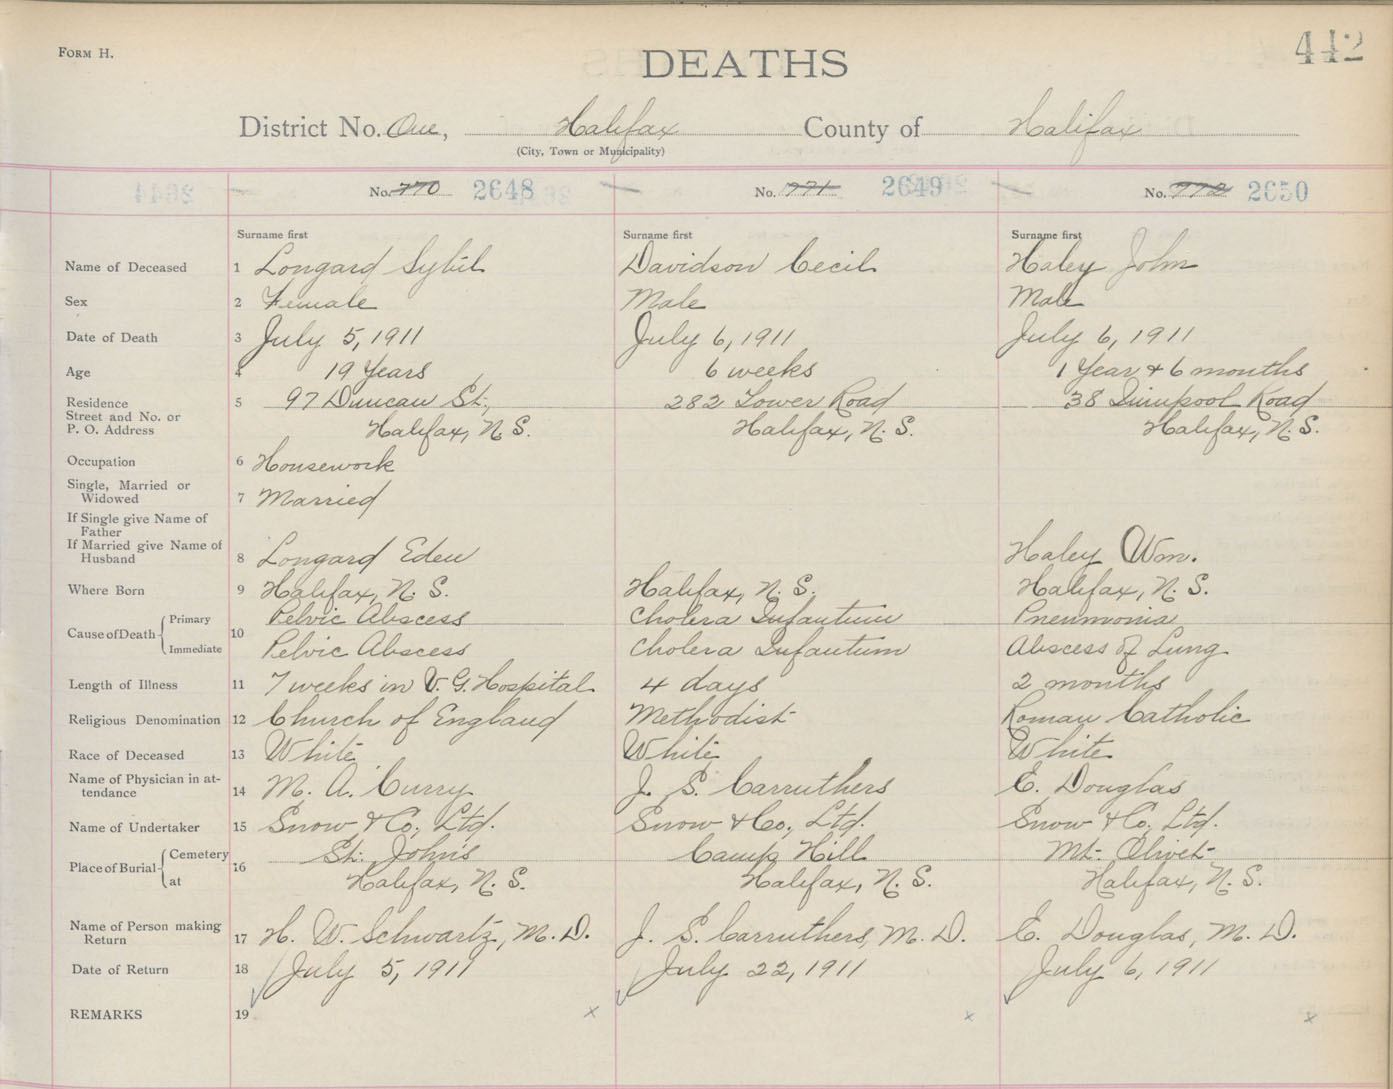 FORM H.
DEATHS
442
District No. One, Halifax County of Halifax
(City, Town or Municipality)
No. 770 2648 No. 771 2649 No. 772 2650
Surname first Surname first Surname first
Name of Deceased 1 Longard Sybil Davidson Cecil Haley John
Sex 2 Female Male Male
Date of Death 3 July 5, 1911 July 6, 1911 July 6, 1911
Age 4 19 Years 6 weeks 1 Year & 6 months
Residence 5 97 Duncan St., 282 Tower Road 38 Road
Street and No. or
P. O. Address Halifax, N. S. Halifax, N. S. Halifax, N. S.
Occupation 6 Housework
Single, Married or
Widowed 7 Married
If Single give Name of
Father
If Married give Name of
Husband 8 Longard Eden Haley Wm.
Where Born 9 Halifax, N. S. Halifax, N. S. Halifax, N. S.
Cause of Death Primary 10 Pelvic Abscess Cholera Infantum Pneumonia
Immediate Pelvic Abscess Cholera Infantum Abscess of Lung
Length of Illness 11 7 weeks in V. G. Hospital 4 days 2 months
Religious Denomination 12 Church of England Methodist Roman Catholic
Race of Deceased 13 White White White
Name of Physician in at-
tendance 14 M. A. Curry J. S. Carruthers E. Douglas
Name of Undertaker 15 Snow & Co., Ltd. Snow & Co., Ltd. Snow & Co., Ltd.
Place of Burial Cemetery 16 St. John's Camp Hill Mt. Olivet
at Halifax, N. S. Halifax, N. S. Halifax, N. S.
Name of Person making
Return 17 H. W. Schwartz, M. D. J. S. Carruthers, M. D. E. Douglas, M. D.
Date of Return 18 July 5, 1911 July 22, 1911 July 6, 1911
REMARKS 19 x x x